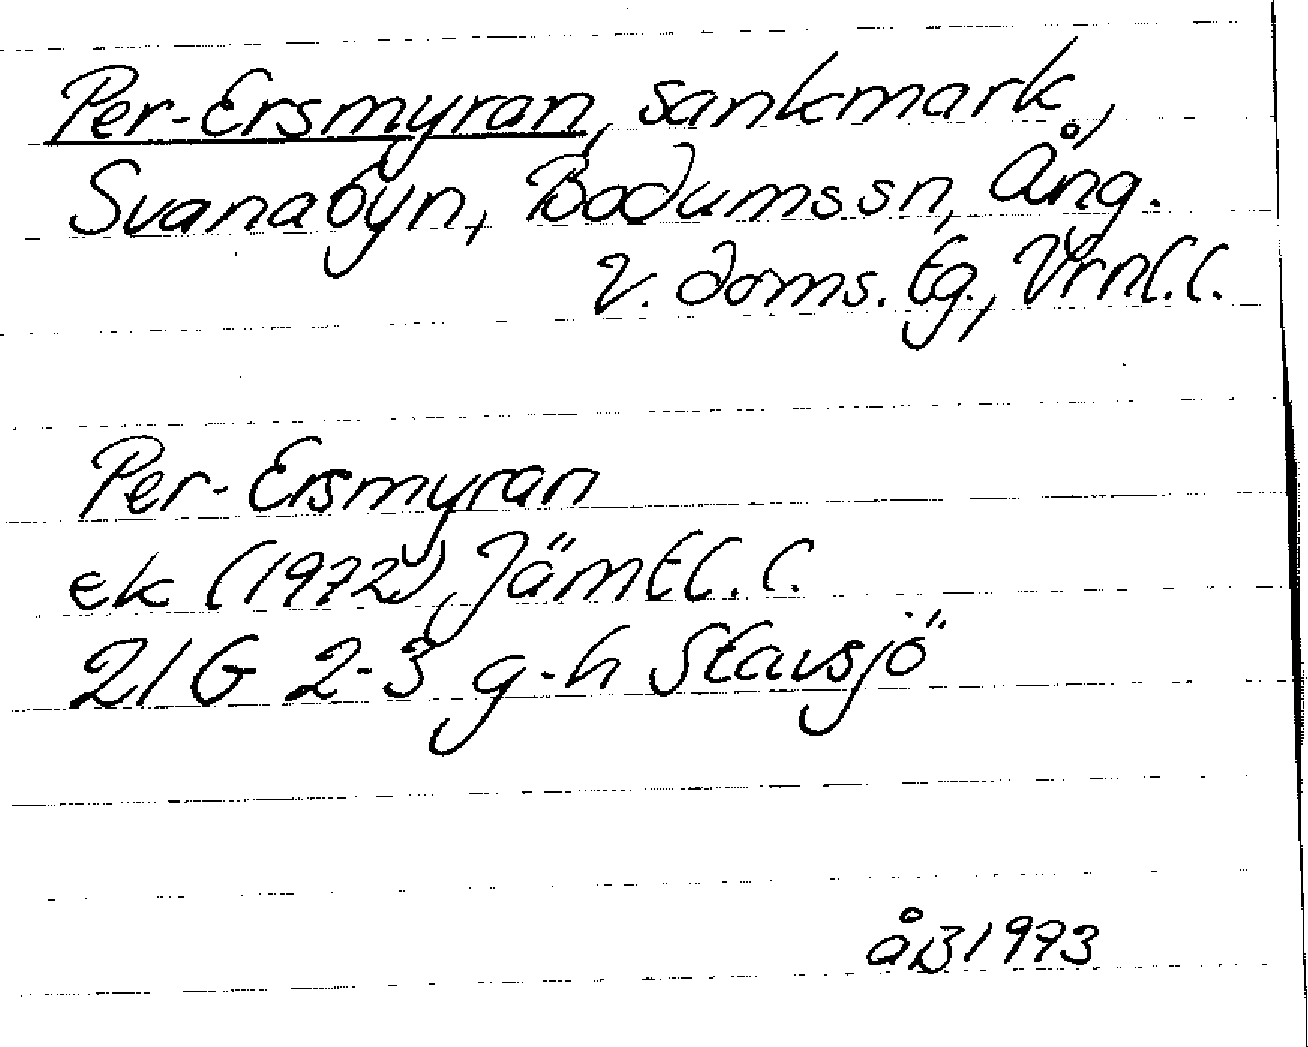 Per-Ersmyran, sankmark,
Svanabyn, Bodumssn, Ång.
V. doms. tg., Vrnl. l.
Per-Ersmyran
ek (1972), Jämtl. l.
21G 2-3 g-h Stavsjö
åB 1973